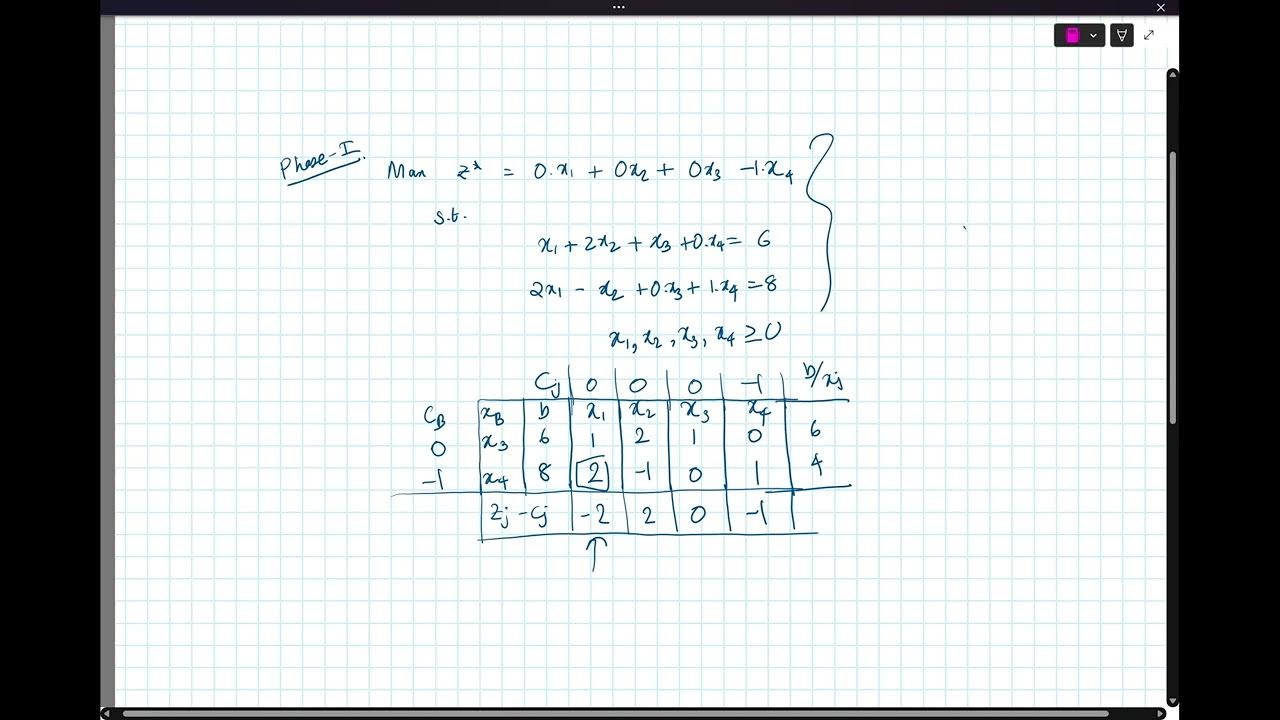 Phase-I.
Max z* = 0.x₁ + 0x₂ + 0x₃ -1.x₄
s.t.
x₁ + 2x₂ + x₃ + 0.x₄ = 6
2x₁ - x₂ + 0.x₃ + 1.x₄ = 8
x₁, x₂, x₃, x₄ ≥ 0
Cj 0 0 0 -1 b/xj
CB xB b x₁ x₂ x₃ x₄
0 x₃ 6 1 2 1 0 6
-1 x₄ 8 2 -1 0 1 4
Zj - Cj -2 2 0 -1